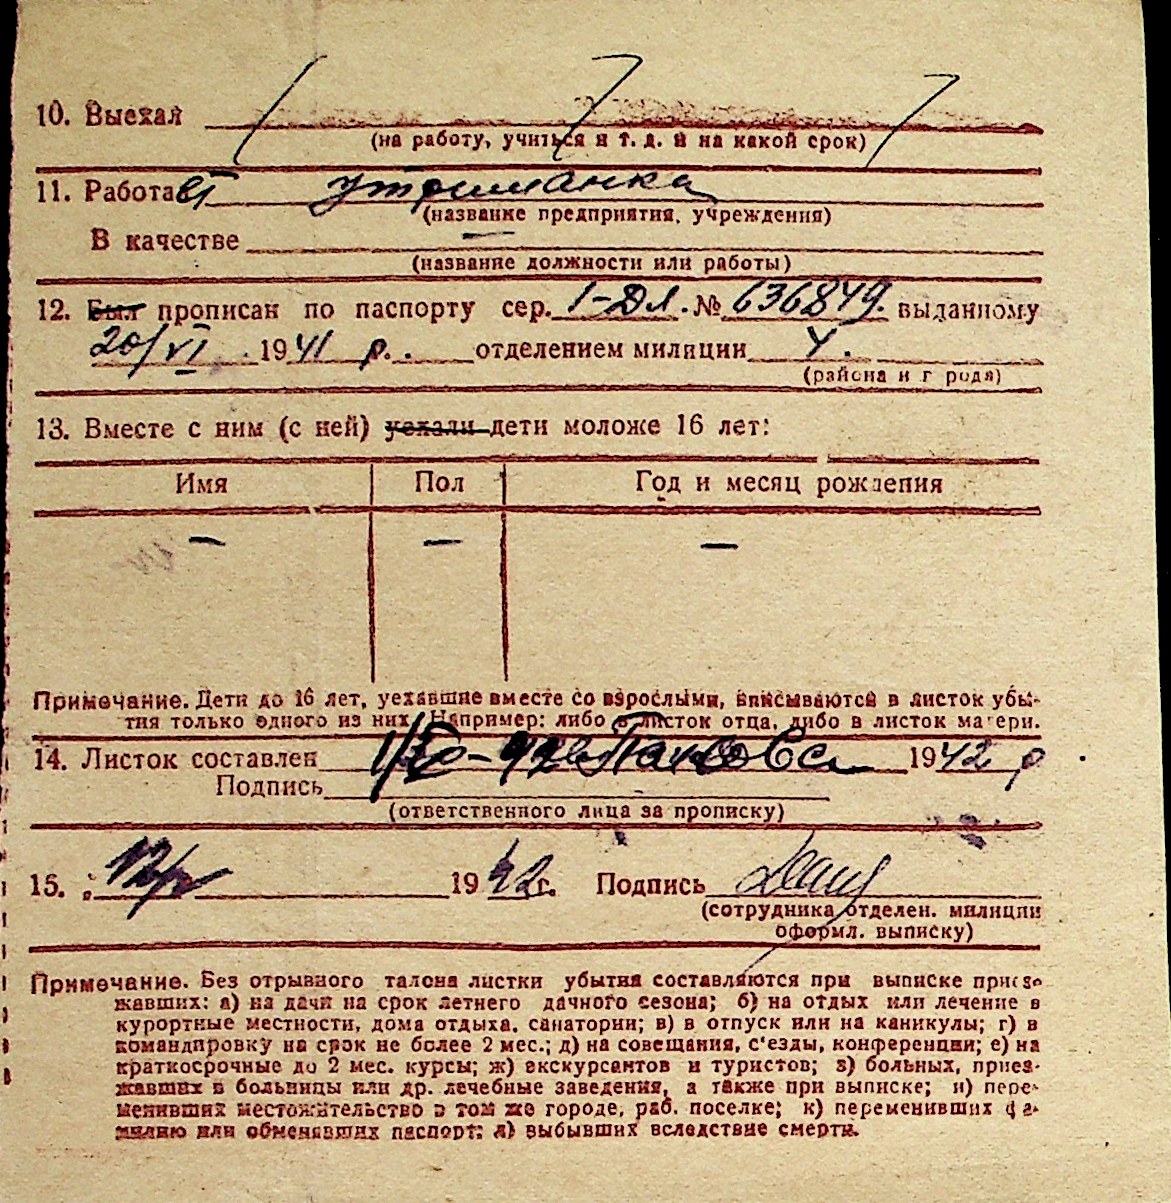 10. Выехал
(на работу, учиться и т. д. и на какой срок)
11. Работа утриманка
(название предприятия, учреждения)
В качестве
(название должности или работы)
12. Был прописан по паспорту сер. I-Дл. № 636849. выданному
20/VI 1941 р. отделением милиции У.
(района и г рода)
13. Вместе с ним (с ней) уехали дети моложе 16 лет:
Имя Пол Год и месяц рождения
— — —
Примечание. Дети до 16 лет, уехавшие вместе со взрослыми, вписываются в листок убы-
тия только одного из них. Например: либо в листок отца, либо в листок матери.
14. Листок составлен 1942 р
Подпись
(ответственного лица за прописку)
15. 1942 г. Подпись
(сотрудника отделен. милиции
оформл. выписку)
Примечание. Без отрывного талона листки убытия составляются при выписке приез-
жавших: а) на дачи на срок летнего дачного сезона; б) на отдых или лечение в
курортные местности, дома отдыха, санатории; в) в отпуск или на каникулы; г) в
командировку на срок не более 2 мес.; д) на совещания, с'езды, конференции; е) на
краткосрочные до 2 мес. курсы; ж) экскурсантов и туристов; з) больных, приез-
жавших в больницы или др. лечебные заведения, а также при выписке; и) пере-
менивших местожительство в том же городе, раб. поселке; к) переменивших фа-
милию или обменявших паспорт; л) выбывших вследствие смерти.